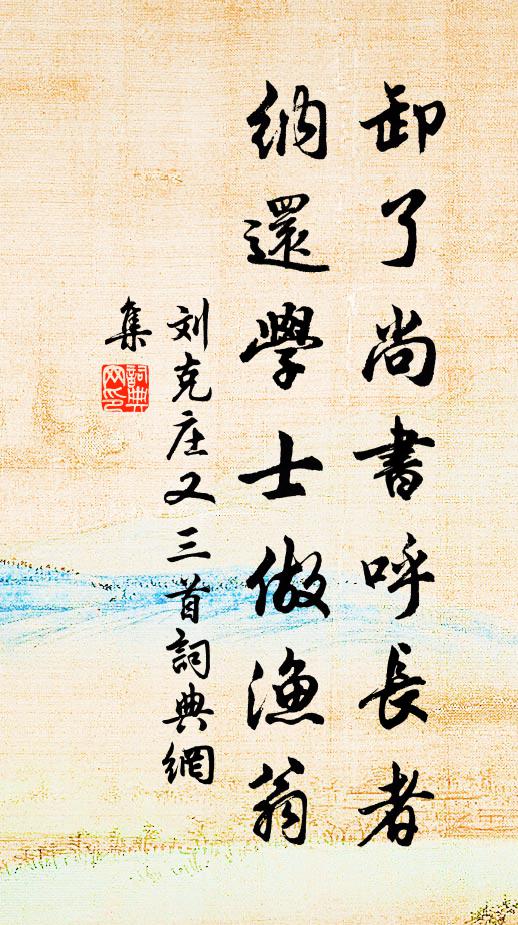 卸了尚書呼長者
納還學士做漁翁
刘克庄又三首詞典網
集
詞典網印